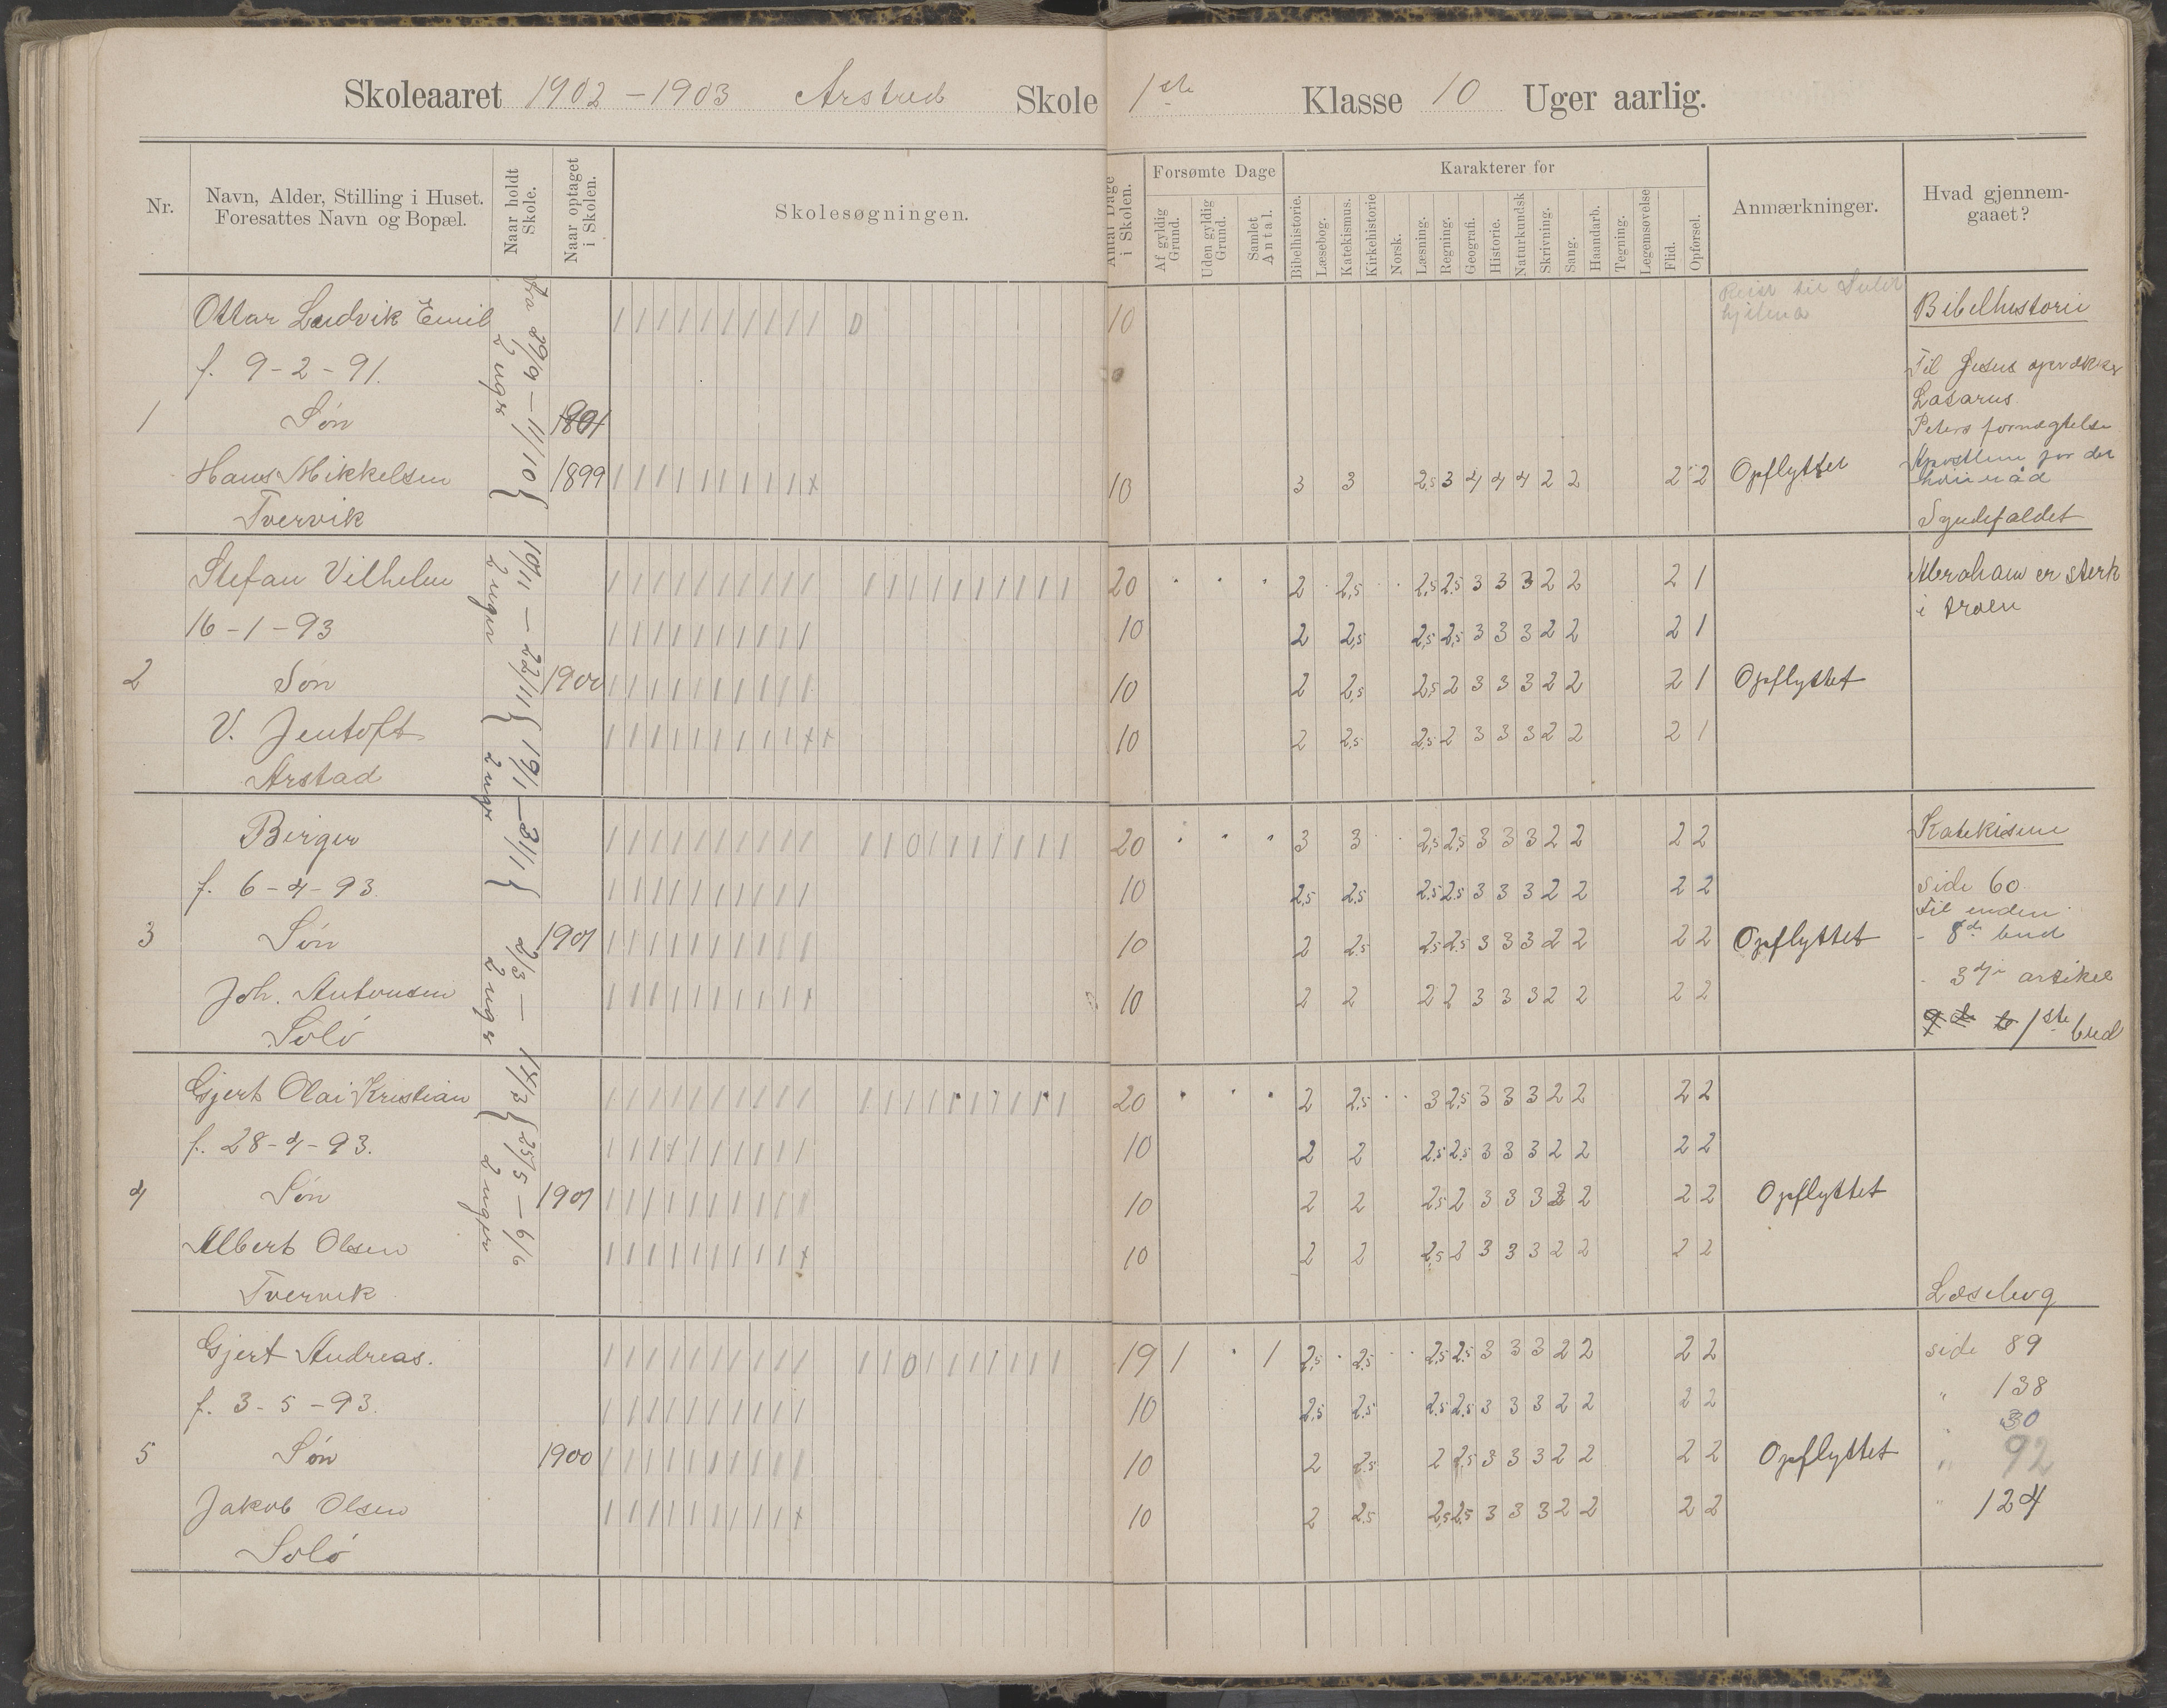 Skoleaaret 1902 - 1903 Arstad Skole 1ste Klasse 10 Uger aarlig.
Nr.
Navn, Alder, Stilling i Huset.
Foresattes Navn og Bopæl.
Naar holdt Skole.
Naar optaget i Skolen.
Skolesøgningen.
Antal Dage i Skolen.
Forsømte Dage
Af gyldig Grund.
Uden gyldig Grund.
Samlet Antal.
Karakterer for
Bibelhistorie.
Læsebog.
Katekismus.
Kirkehistorie
Norsk.
Læsning.
Regning.
Geografi.
Historie.
Naturkundsk
Skrivning.
Sang.
Haandarb.
Tegning.
Legemsøvelse
Flid.
Opførsel.
Anmærkninger.
Hvad gjennemgaaet?
Fra 29/9 - 11/10 2 uger
10/11 - 22/11 2 uger
19/1 - 31/1 2 uger
2/3 - 14/3 2 uger
25/5 - 6/6 2 uger
Ottar Ludvik Emil / / / / / / / / / / 0 10 Reist til
f. 9-2-91.
1 Søn 1891
Hans Mikkelsen 1899 / / / / / / / / / x 10 3 3 2,5 3 4 4 4 2 2 2 2 Opflyttet
Tvervik
Stefan Vilhelm / / / / / / / / / / / / / / / / / / / / 20 2 2,5 2,5 2,5 3 3 3 2 2 2 1
16-1-93 / / / / / / / / / / 10 2 2,5 2,5 2,5 3 3 3 2 2 2 1
2 Søn 1900 / / / / / / / / / / 10 2 2,5 2,5 2 3 3 3 2 2 2 1 Opflyttet
V. Jentoft / / / / / / / / / x x 10 2 2,5 2,5 2 3 3 3 2 2 2 1
Arstad
Birger / / / / / / / / / / / / 0 / / / / / / / 20 3 3 2,5 2,5 3 3 3 2 2 2 2
f. 6-4-93. / / / / / / / / / / 10 2,5 2,5 2,5 2,5 3 3 3 2 2 2 2
3 Søn 1901 / / / / / / / / / / 10 2 2,5 2,5 2,5 3 3 3 2 2 2 2 Opflyttet
Joh. Antonsen / / / / / / / / / x 10 2 2 2 2 3 3 3 2 2 2 2
Solø
Gjert Olai Kristian / / / / / / / / / / / / / / / / / / / / 20 2 2,5 3 2,5 3 3 3 2 2 2 2
f. 28-4-93. / / / / / / / / / / 10 2 2 2,5 2,5 3 3 3 2 2 2 2
4 Søn 1901 / / / / / / / / / / 10 2 2 2,5 2 3 3 3 2 2 2 2 Opflyttet
Albert Olsen / / / / / / / / / x 10 2 2 2,5 2 3 3 3 2 2 2 2
Tvervik
Gjert Andreas. / / / / / / / / / / / / 0 / / / / / / / 19 1 1 2,5 2,5 2,5 2,5 3 3 3 2 2 2 2
f. 3-5-93. / / / / / / / / / / 10 2,5 2,5 2,5 2,5 3 3 3 2 2 2 2
5 Søn 1900 / / / / / / / / / / 10 2 2,5 2 2,5 3 3 3 2 2 2 2 Opflyttet
Jakob Olsen / / / / / / / / / x 10 2 2,5 2,5 2,5 3 3 3 2 2 2 2
Solø
Bibelhistorie
Til Jesus opvækker
Lasarus
Peters fornegtelse
Apostlene for det
høie råd
Syndefaldet
Abraham er sterk
i troen
Katekisme
side 60
Til enden
- 8de bud
- 3dje artikel
1ste bud
Læsebog
side 89
" 138
" 30
" 92
" 124